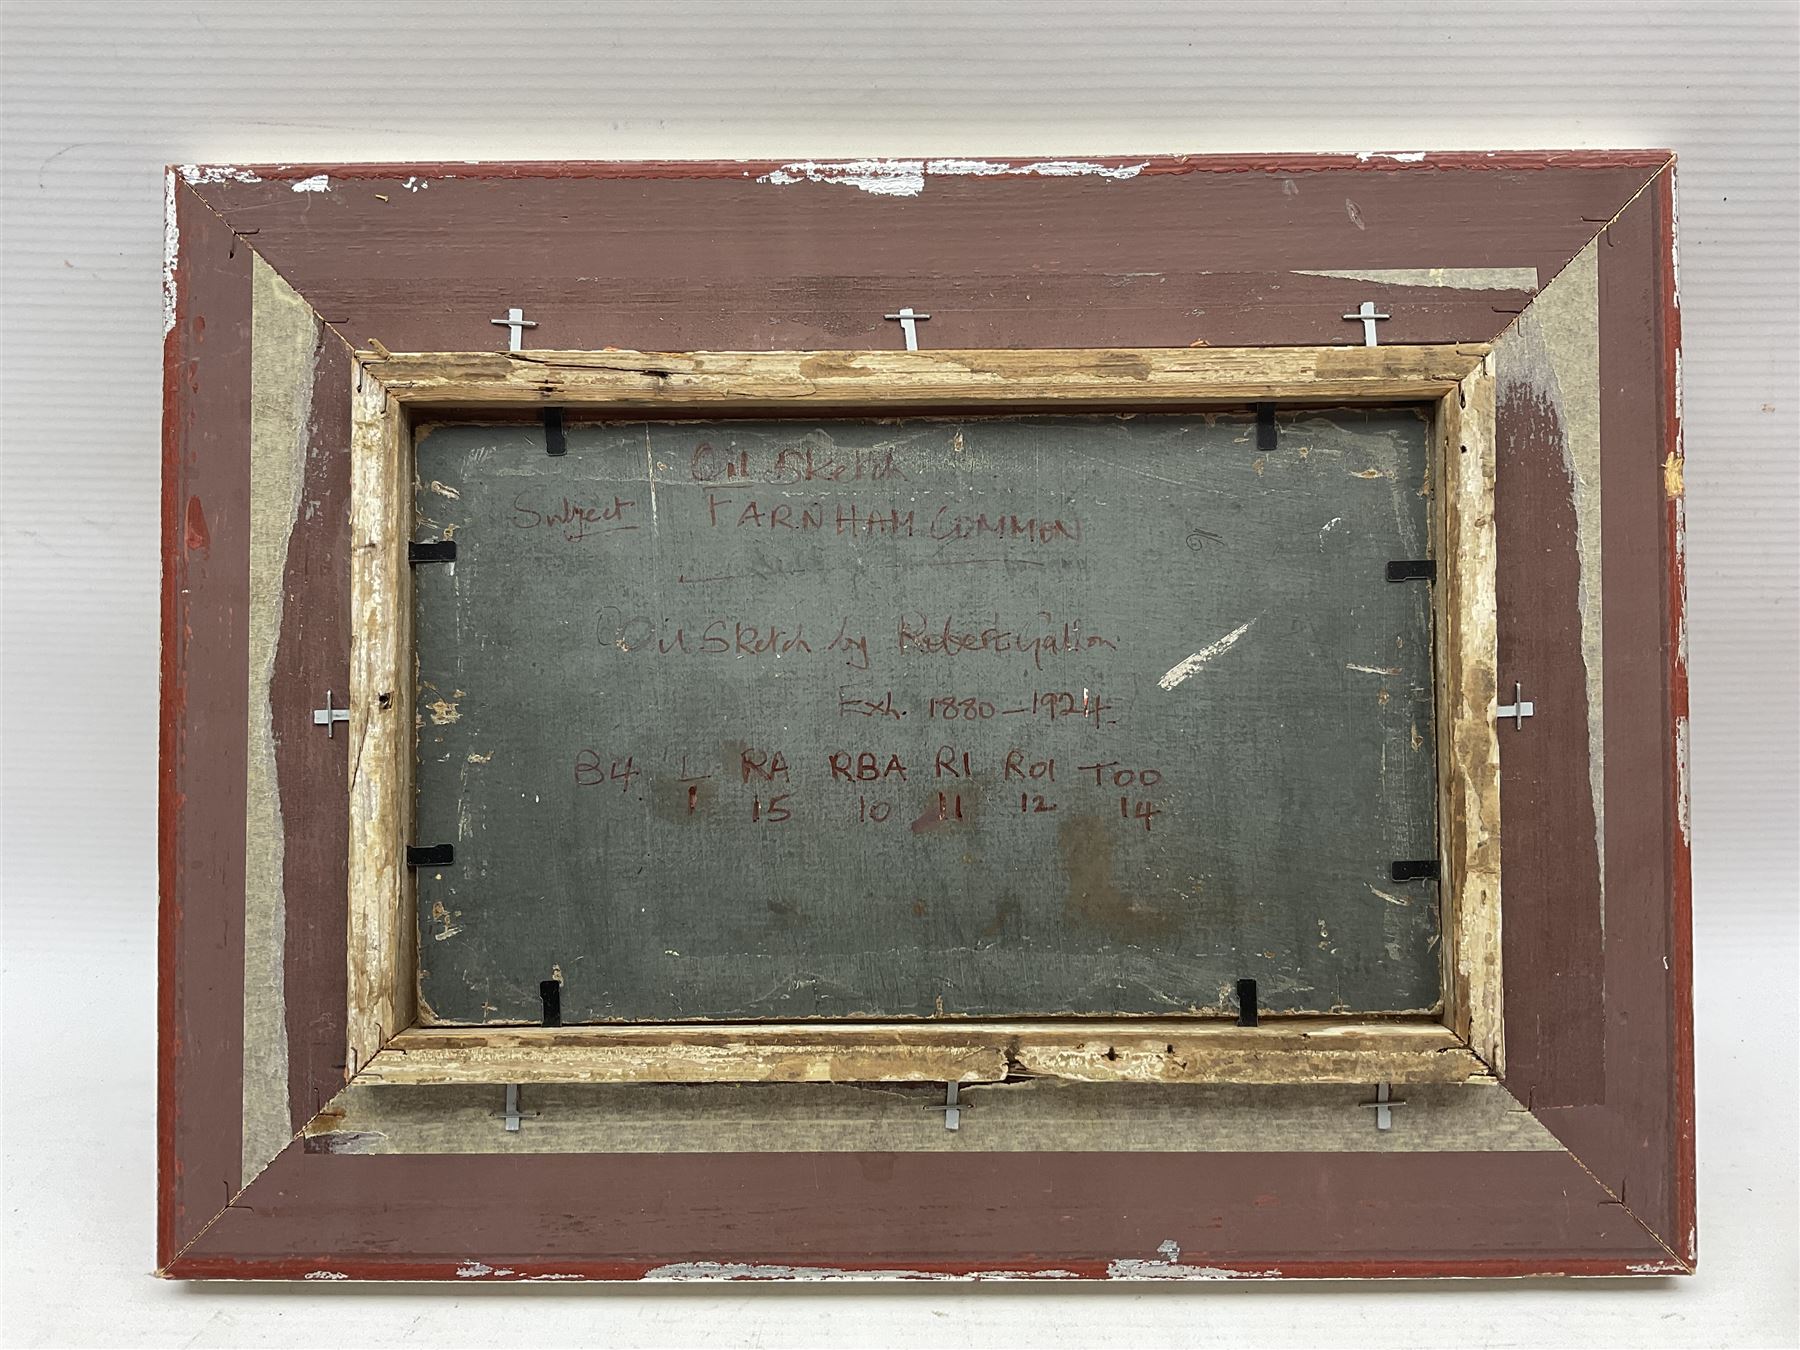 Oil Sketch
Subject FARNHAM COMMON
Oil Sketch by Robert Gallon
Exh. 1880-1924
B4 L RA RBA RI ROI TOO
1 15 10 11 12 14